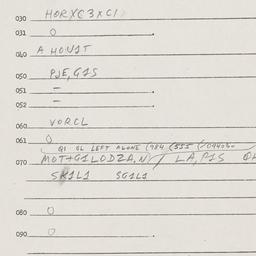 030 HORXC3XC1
031 0
040 A HOUIT
050 PJE,GIS
051 -
052 -
060 VORCL
061 0
QI OL LEFT ALONE (984 (555
070 MOT+GILODZA,N/ LA,PIS
SKILI SGILI
080 0
090 0